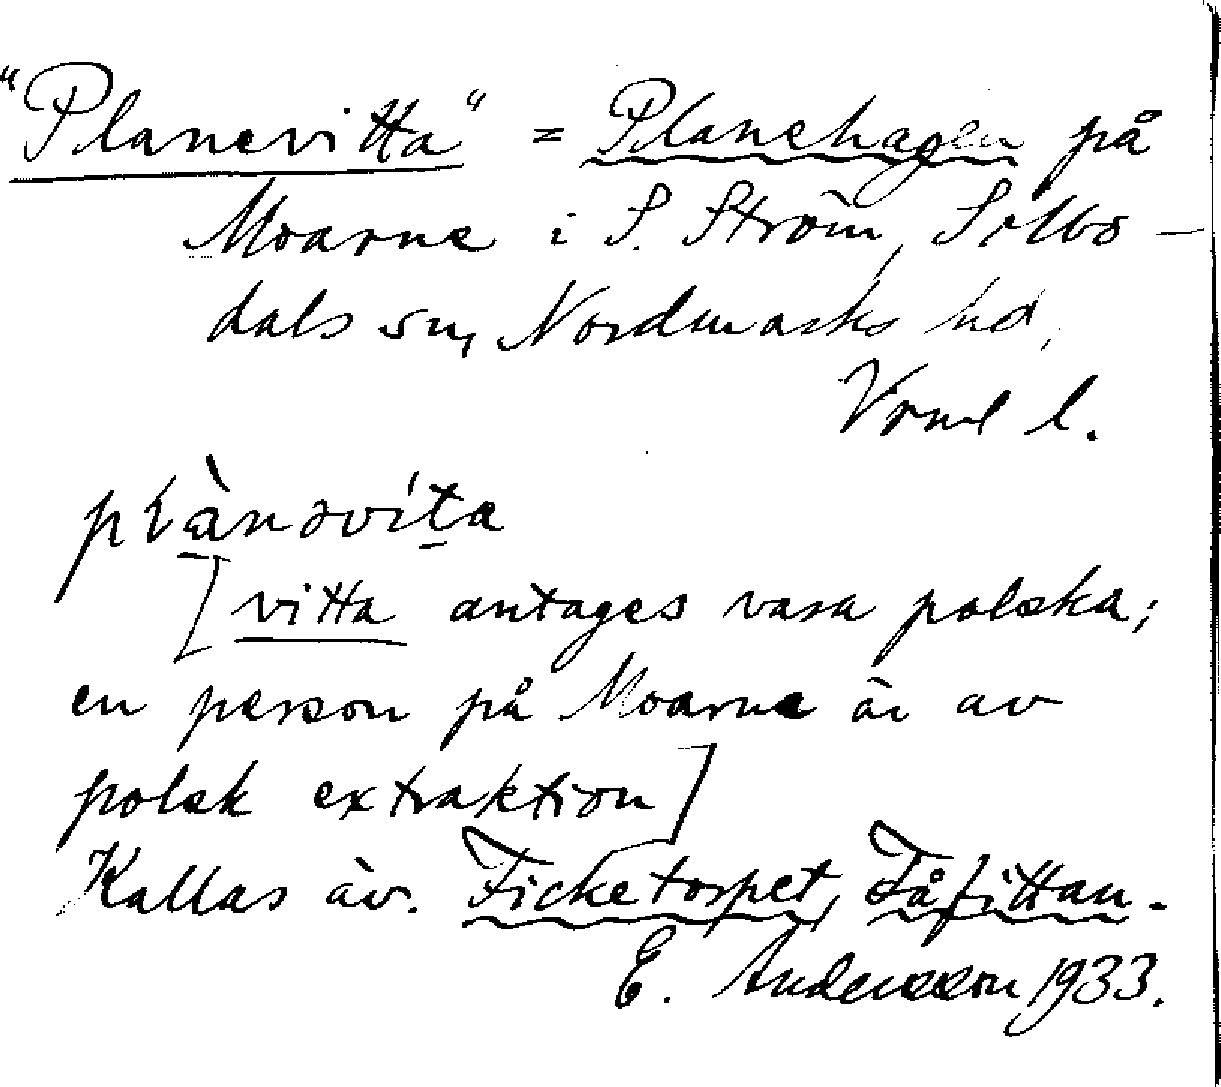 "Planevitta" = Planehagen på
Moarne i S. Ström, Sillbo-
dals sn, Nordmarks hd,
Vrml l.
plànəvíta
[vitta antages vara polska;
en person på Moarne är av
polsk extraktion]
Kallas äv. Ficketorpet, Fåfittan.
E. Andersson 1933.